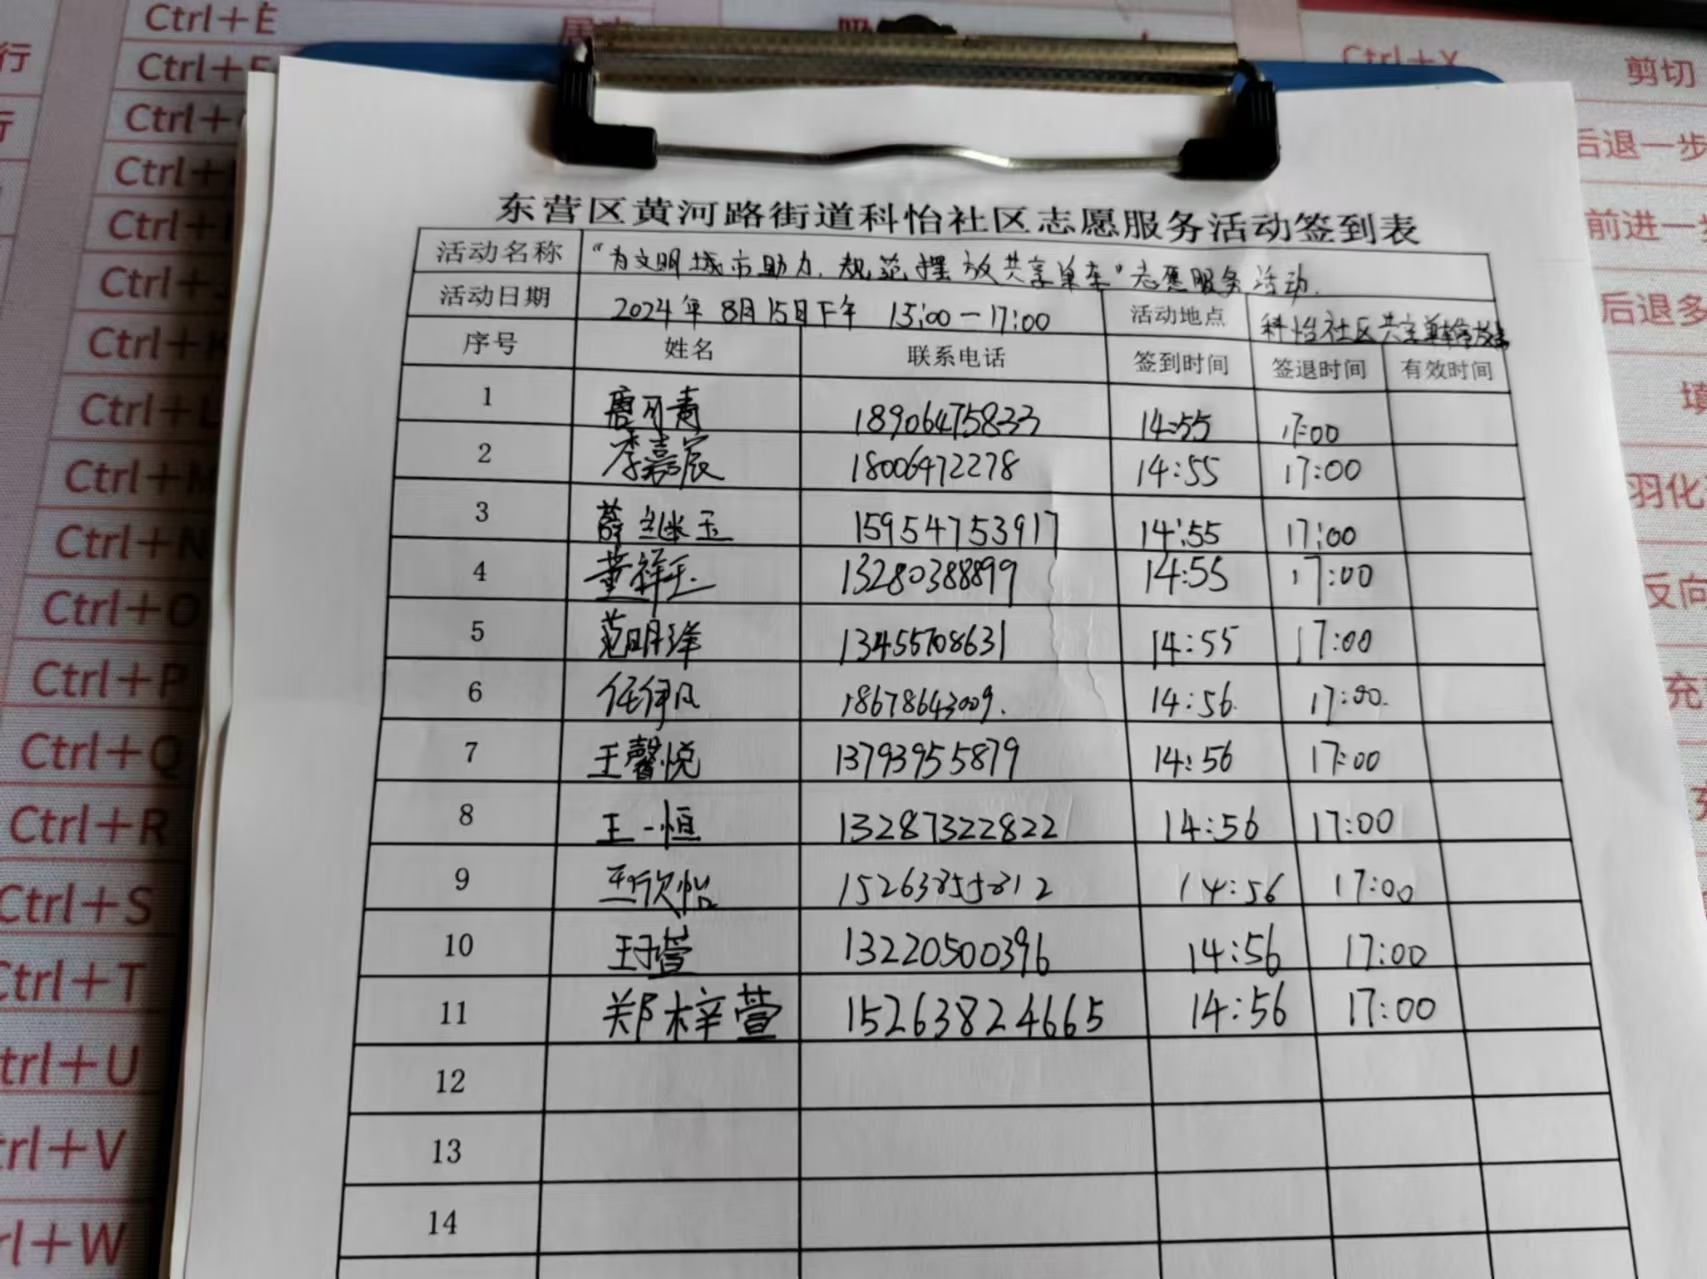 Ctrl+E
Ctrl+X 剪切
后退一步
Ctrl+L
Ctrl+M
Ctrl+N
Ctrl+O
Ctrl+P
Ctrl+Q
Ctrl+R
Ctrl+S
Ctrl+T
羽化
反向
东营区黄河路街道科怡社区志愿服务活动签到表
活动名称 “为文明城市助力，规范摆放共享单车”志愿服务活动.
活动日期 2024年8月15日下午 15:00-17:00 活动地点 科怡社区共享单车停放点
序号 姓名 联系电话 签到时间 签退时间 有效时间
1 唐可青 18906475833 14:55 17:00
2 李嘉宸 18006472278 14:55 17:00
3 薛继玉 15954753917 14:55 17:00
4 董祥玉 13280388899 14:55 17:00
5 范明洋 13455708631 14:55 17:00
6 任伊凡 18678643009. 14:56. 17:00.
7 王馨悦 13793955879 14:56 17:00
8 王一恒 13287322822 14:56 17:00
9 王欣怡 15263855812 14:56 17:00
10 王子萱 13220500396 14:56 17:00
11 郑梓萱 15263824665 14:56 17:00
12
13
14